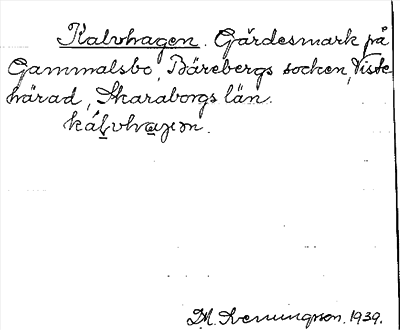 Kalvhagen. Gärdesmark på
Gammalsbo, Bärebergs socken, Viste
härad, Skaraborgs län.
kálvhagen.
D.M. Svenningson. 1939.